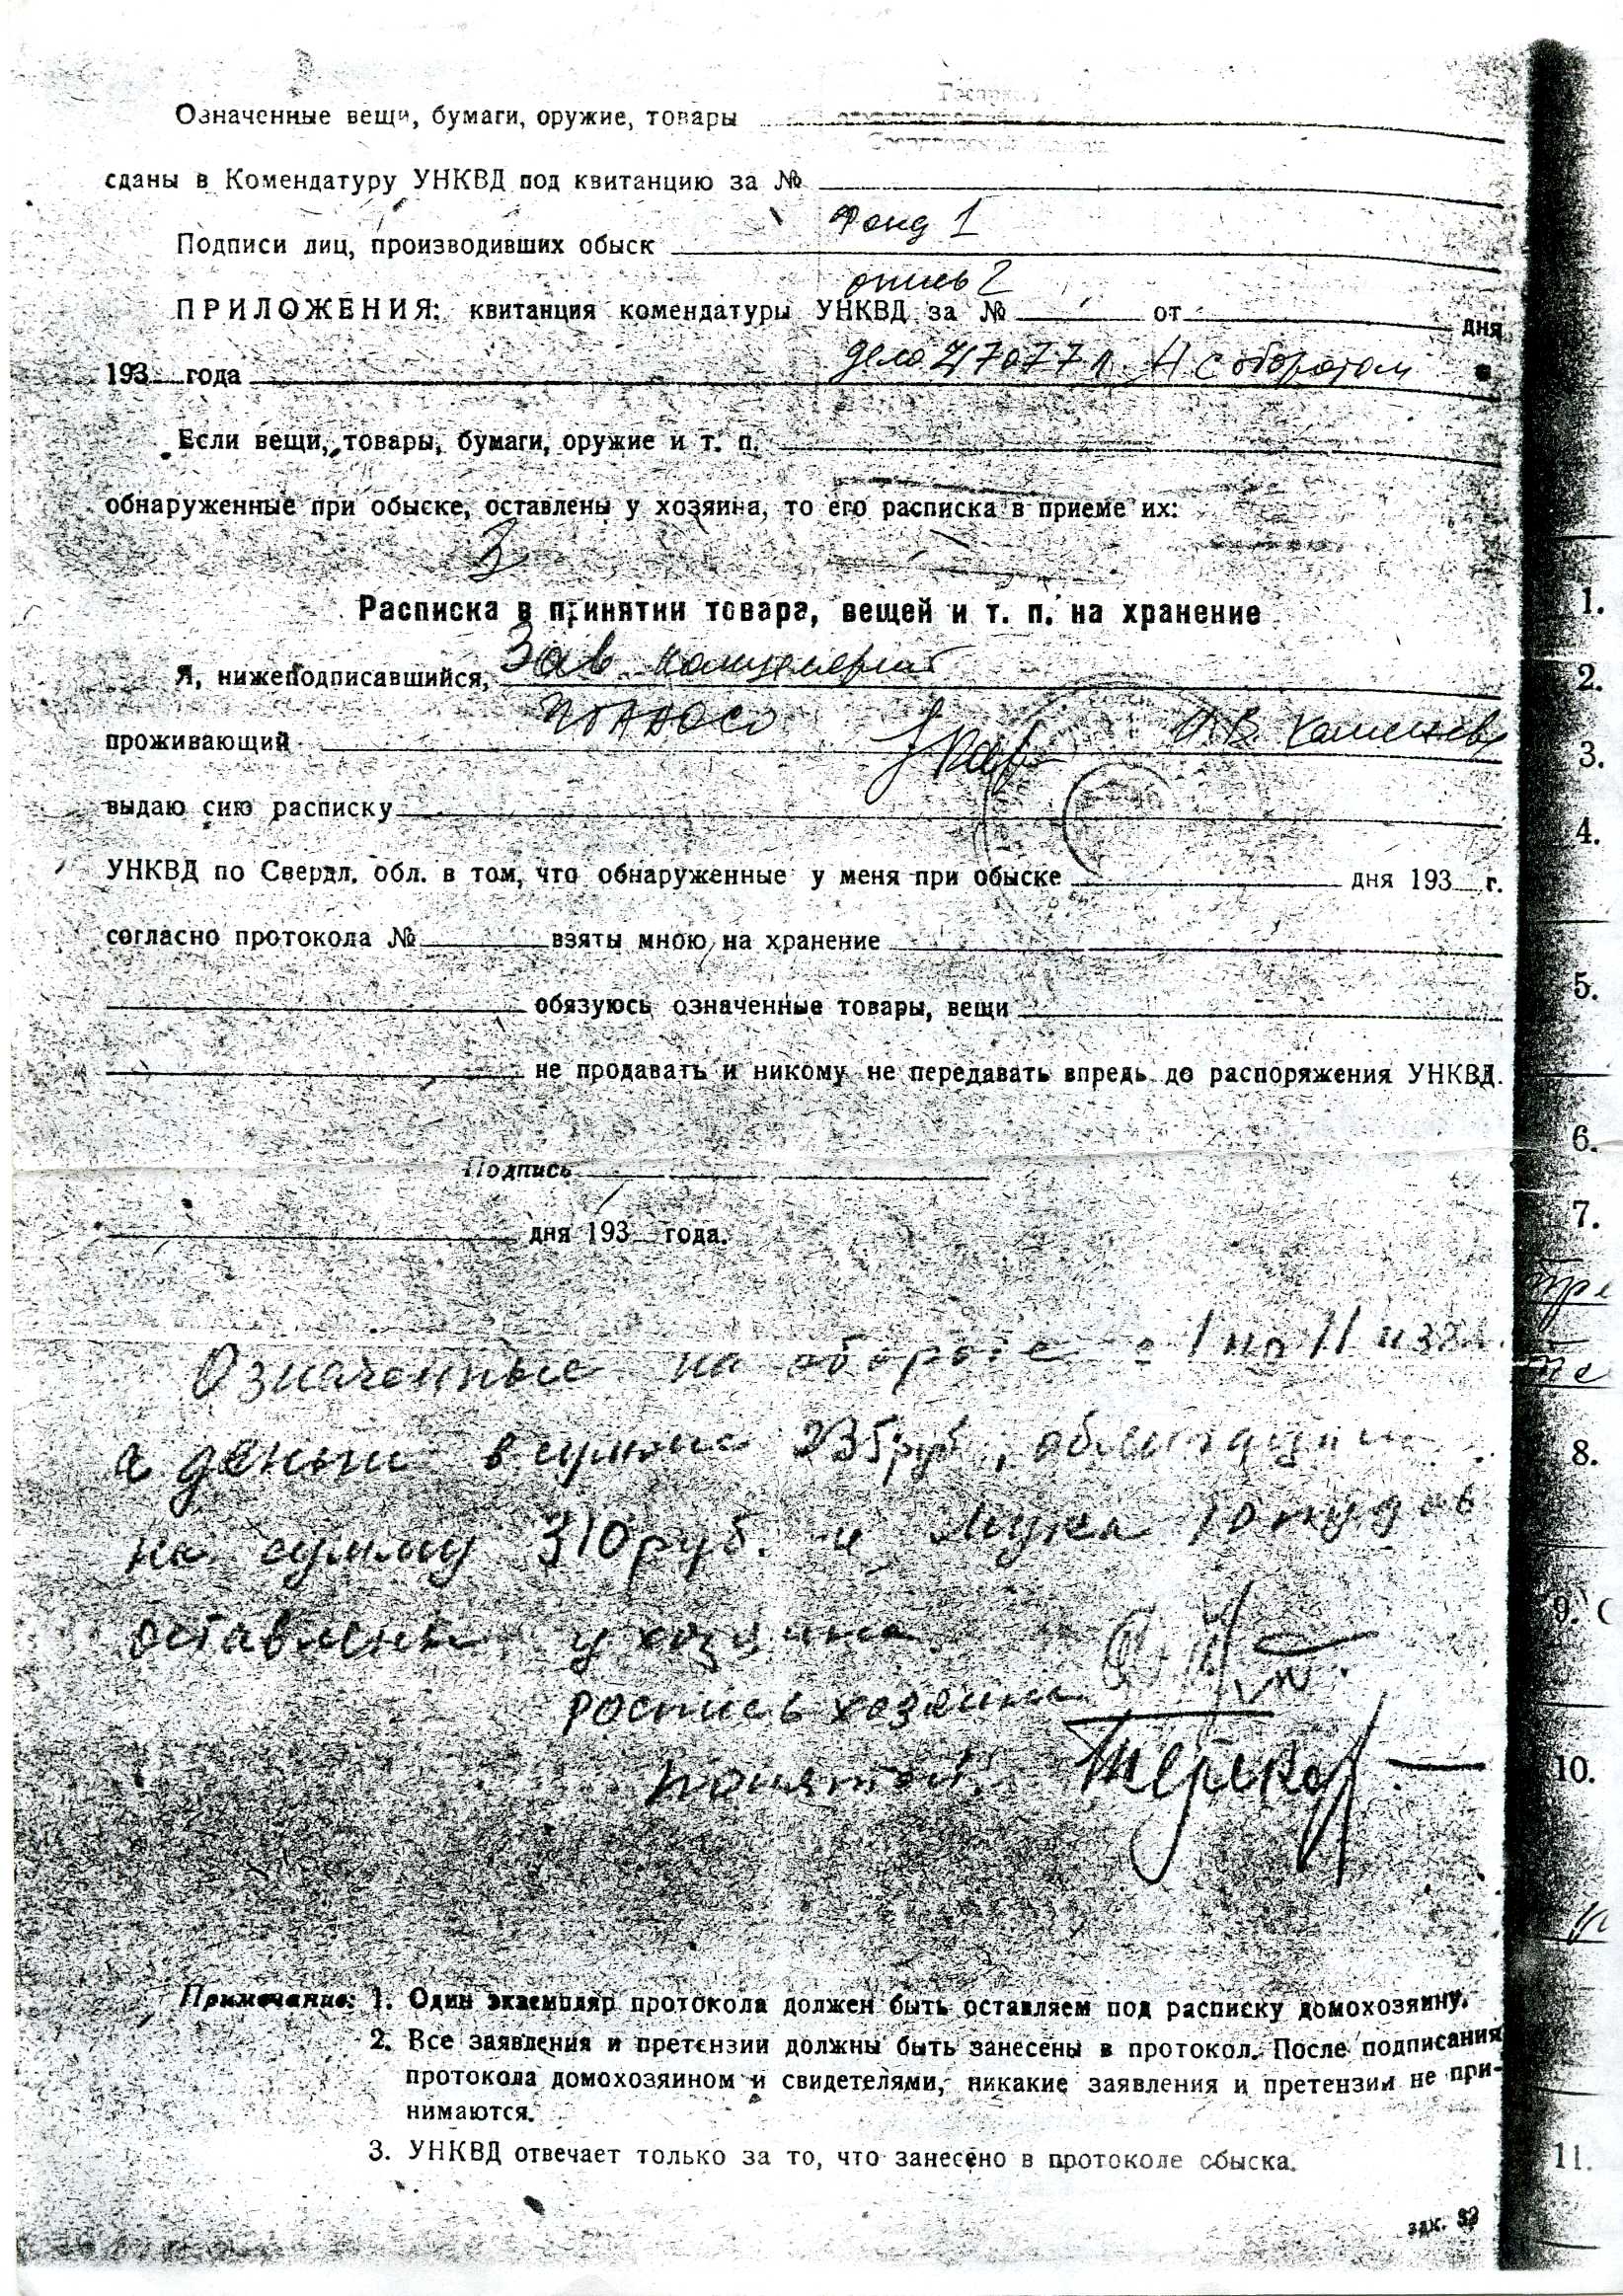 Означенные вещи, бумаги, оружие, товары
сданы в Комендатуру УНКВД под квитанцию за №
Фонд 1
Подписи лиц, производивших обыск
опись 2
ПРИЛОЖЕНИЯ: квитанция комендатуры УНКВД за № от дня
дело 47077 л. 4 с оборотом
193 года
Если вещи, товары, бумаги, оружие и т. п.
обнаруженные при обыске, оставлены у хозяина, то его расписка в приеме их:
Расписка в принятии товара, вещей и т. п. на хранение
Зав.
Я, нижеподписавшийся,
проживающий
выдаю сию расписку
УНКВД по Свердл. обл. в том, что обнаруженные у меня при обыске дня 193 г.
согласно протокола № взяты мною на хранение
обязуюсь означенные товары, вещи
не продавать и никому не передавать впредь до распоряжения УНКВД.
Подпись
дня 193 года.
Означенные на обороте с 1 по 11
а деньги в сумме 235 руб, облигации
на сумму 310 руб. и мука 10 пудов
оставлены у хозяина
роспись хозяина
понятой.
Примечание: 1. Один экземпляр протокола должен быть оставляем под расписку домохозяину.
2. Все заявления и претензии должны быть занесены в протокол. После подписания
протокола домохозяином и свидетелями, никакие заявления и претензии не при-
нимаются.
3. УНКВД отвечает только за то, что занесено в протоколе обыска.
зак.
1.
2.
3.
4.
5.
6.
7.
8.
9. С
10.
11.